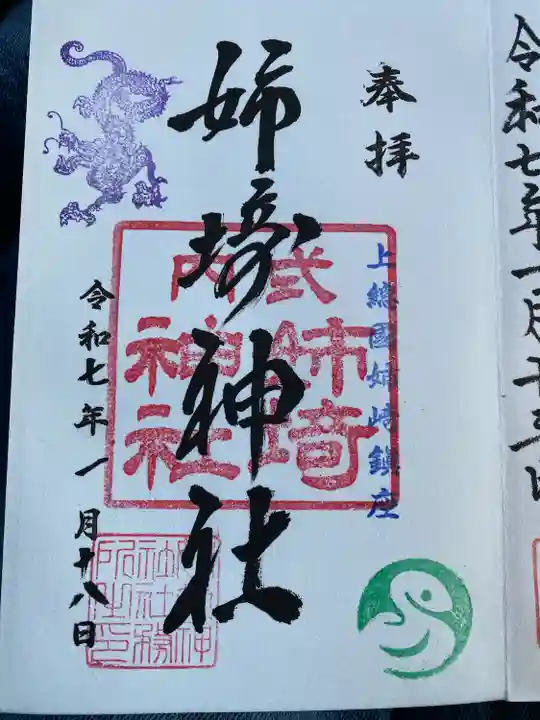 令和七年一月十三日
奉拝
上総国姉崎鎮座
姉埼神社
式内
姉埼
神社
令和七年一月十八日